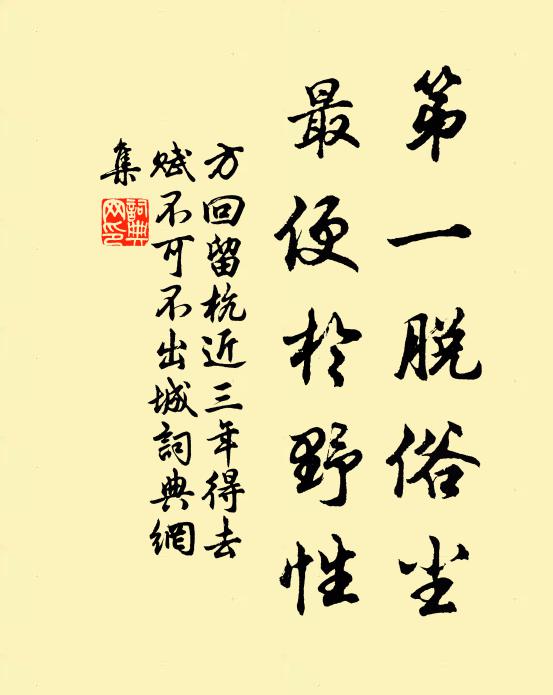 第一脱俗尘
最便於野性
方回留杭近三年得去
赋不可不出城詞典網
集
詞典
网印